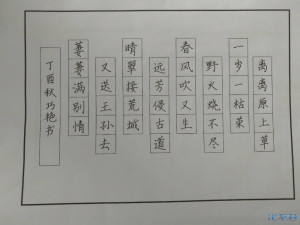 离离原上草
一岁一枯荣
野火烧不尽
春风吹又生
远芳侵古道
晴翠接荒城
又送王孙去
萋萋满别情
丁酉秋巧艳书